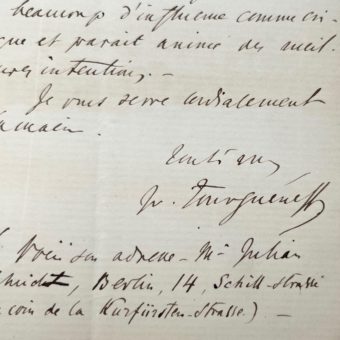 beaucoup d'influence comme cri-
que et parait animé des meil-
ures intentions. –
Je vous serre cordialement
la main.
Tout à vous
Iv. Tourguéneff
Voici son adresse – Mr Julian
chmidt, Berlin, 14, Schill-strasse
coin de la Kurfürsten-Strasse.) –